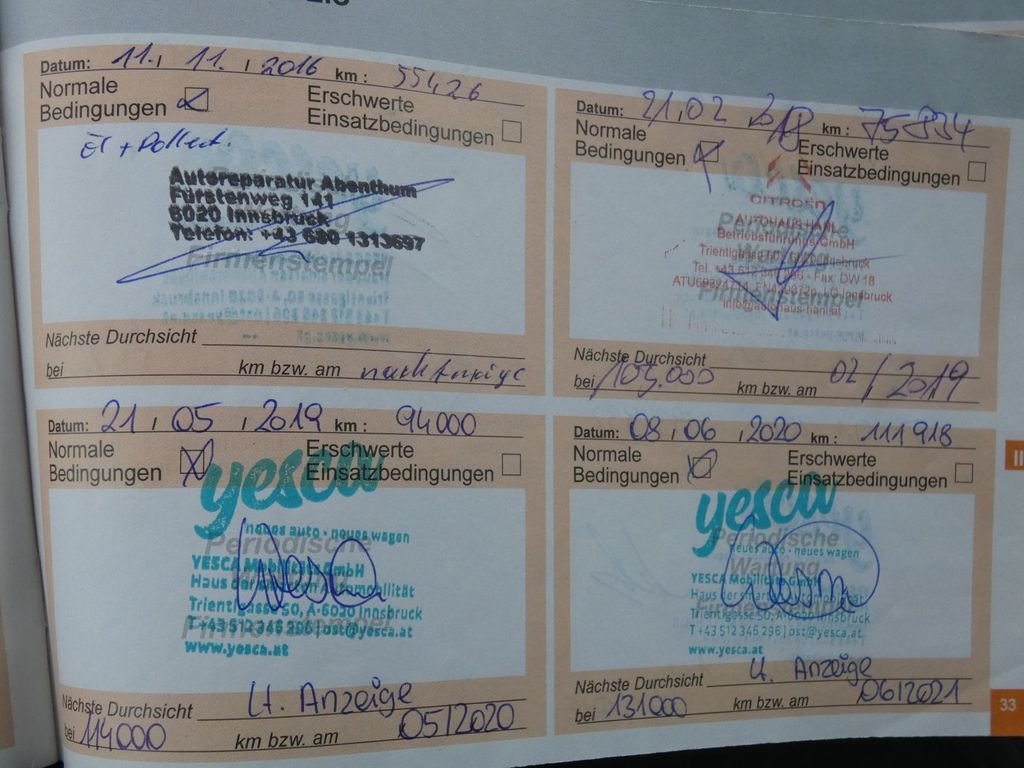 Datum: 11. , 11. , 2016 km : 55426
Normale
Bedingungen
Erschwerte
Einsatzbedingungen
Autoreparatur Abenthum
Fürstenweg 141
6020 Innsbruck
Telefon: +43 680 1313697
Firmenstempel
Nächste Durchsicht
bei km bzw. am
Datum: 21,02 km : 75834
Normale
Bedingungen
Erschwerte
Einsatzbedingungen
CITROËN
AUTOHAUS HANL
Betriebsführungs GmbH
Periodische
Wartung
Firmenstempel
Nächste Durchsicht
bei 105.000 km bzw. am 02/2019
Datum: 21 , 05 , 2019 km : 94000
Normale
Bedingungen
Erschwerte
Einsatzbedingungen
yesca
neues auto · neues wagen
Periodische
YESCA Mobilität GmbH
Haus der Automobilität
Trientlgasse 50, A-6020 Innsbruck
Firmenstempel
T +43 512 346 296 | ost@yesca.at
www.yesca.at
Nächste Durchsicht lt. Anzeige
bei 114000 km bzw. am 05/2020
Datum: 08 , 06 , 2020 km : 111918
Normale
Bedingungen
Erschwerte
Einsatzbedingungen
yesca
neues auto · neues wagen
Periodische
Wartung
YESCA Mobilität GmbH
Trientlgasse 50, A-6020 Innsbruck
T +43 512 345 296 | ost@yesca.at
www.yesca.at
Nächste Durchsicht lt. Anzeige
bei 131000 km bzw. am 06/2021
33